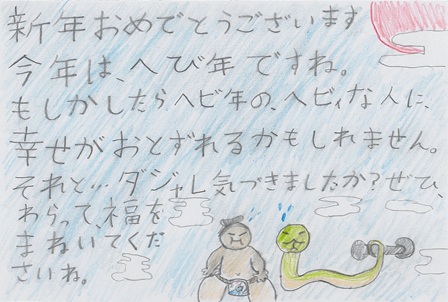 新年おめでとうございます
今年は、へび年ですね。
もしかしたらヘビ年の、ヘビィな人に、
幸せがおとずれるかもしれません。
それと…ダジャレ気づきましたか?ぜひ、
わらって、福を
まねいてくだ
さいね。